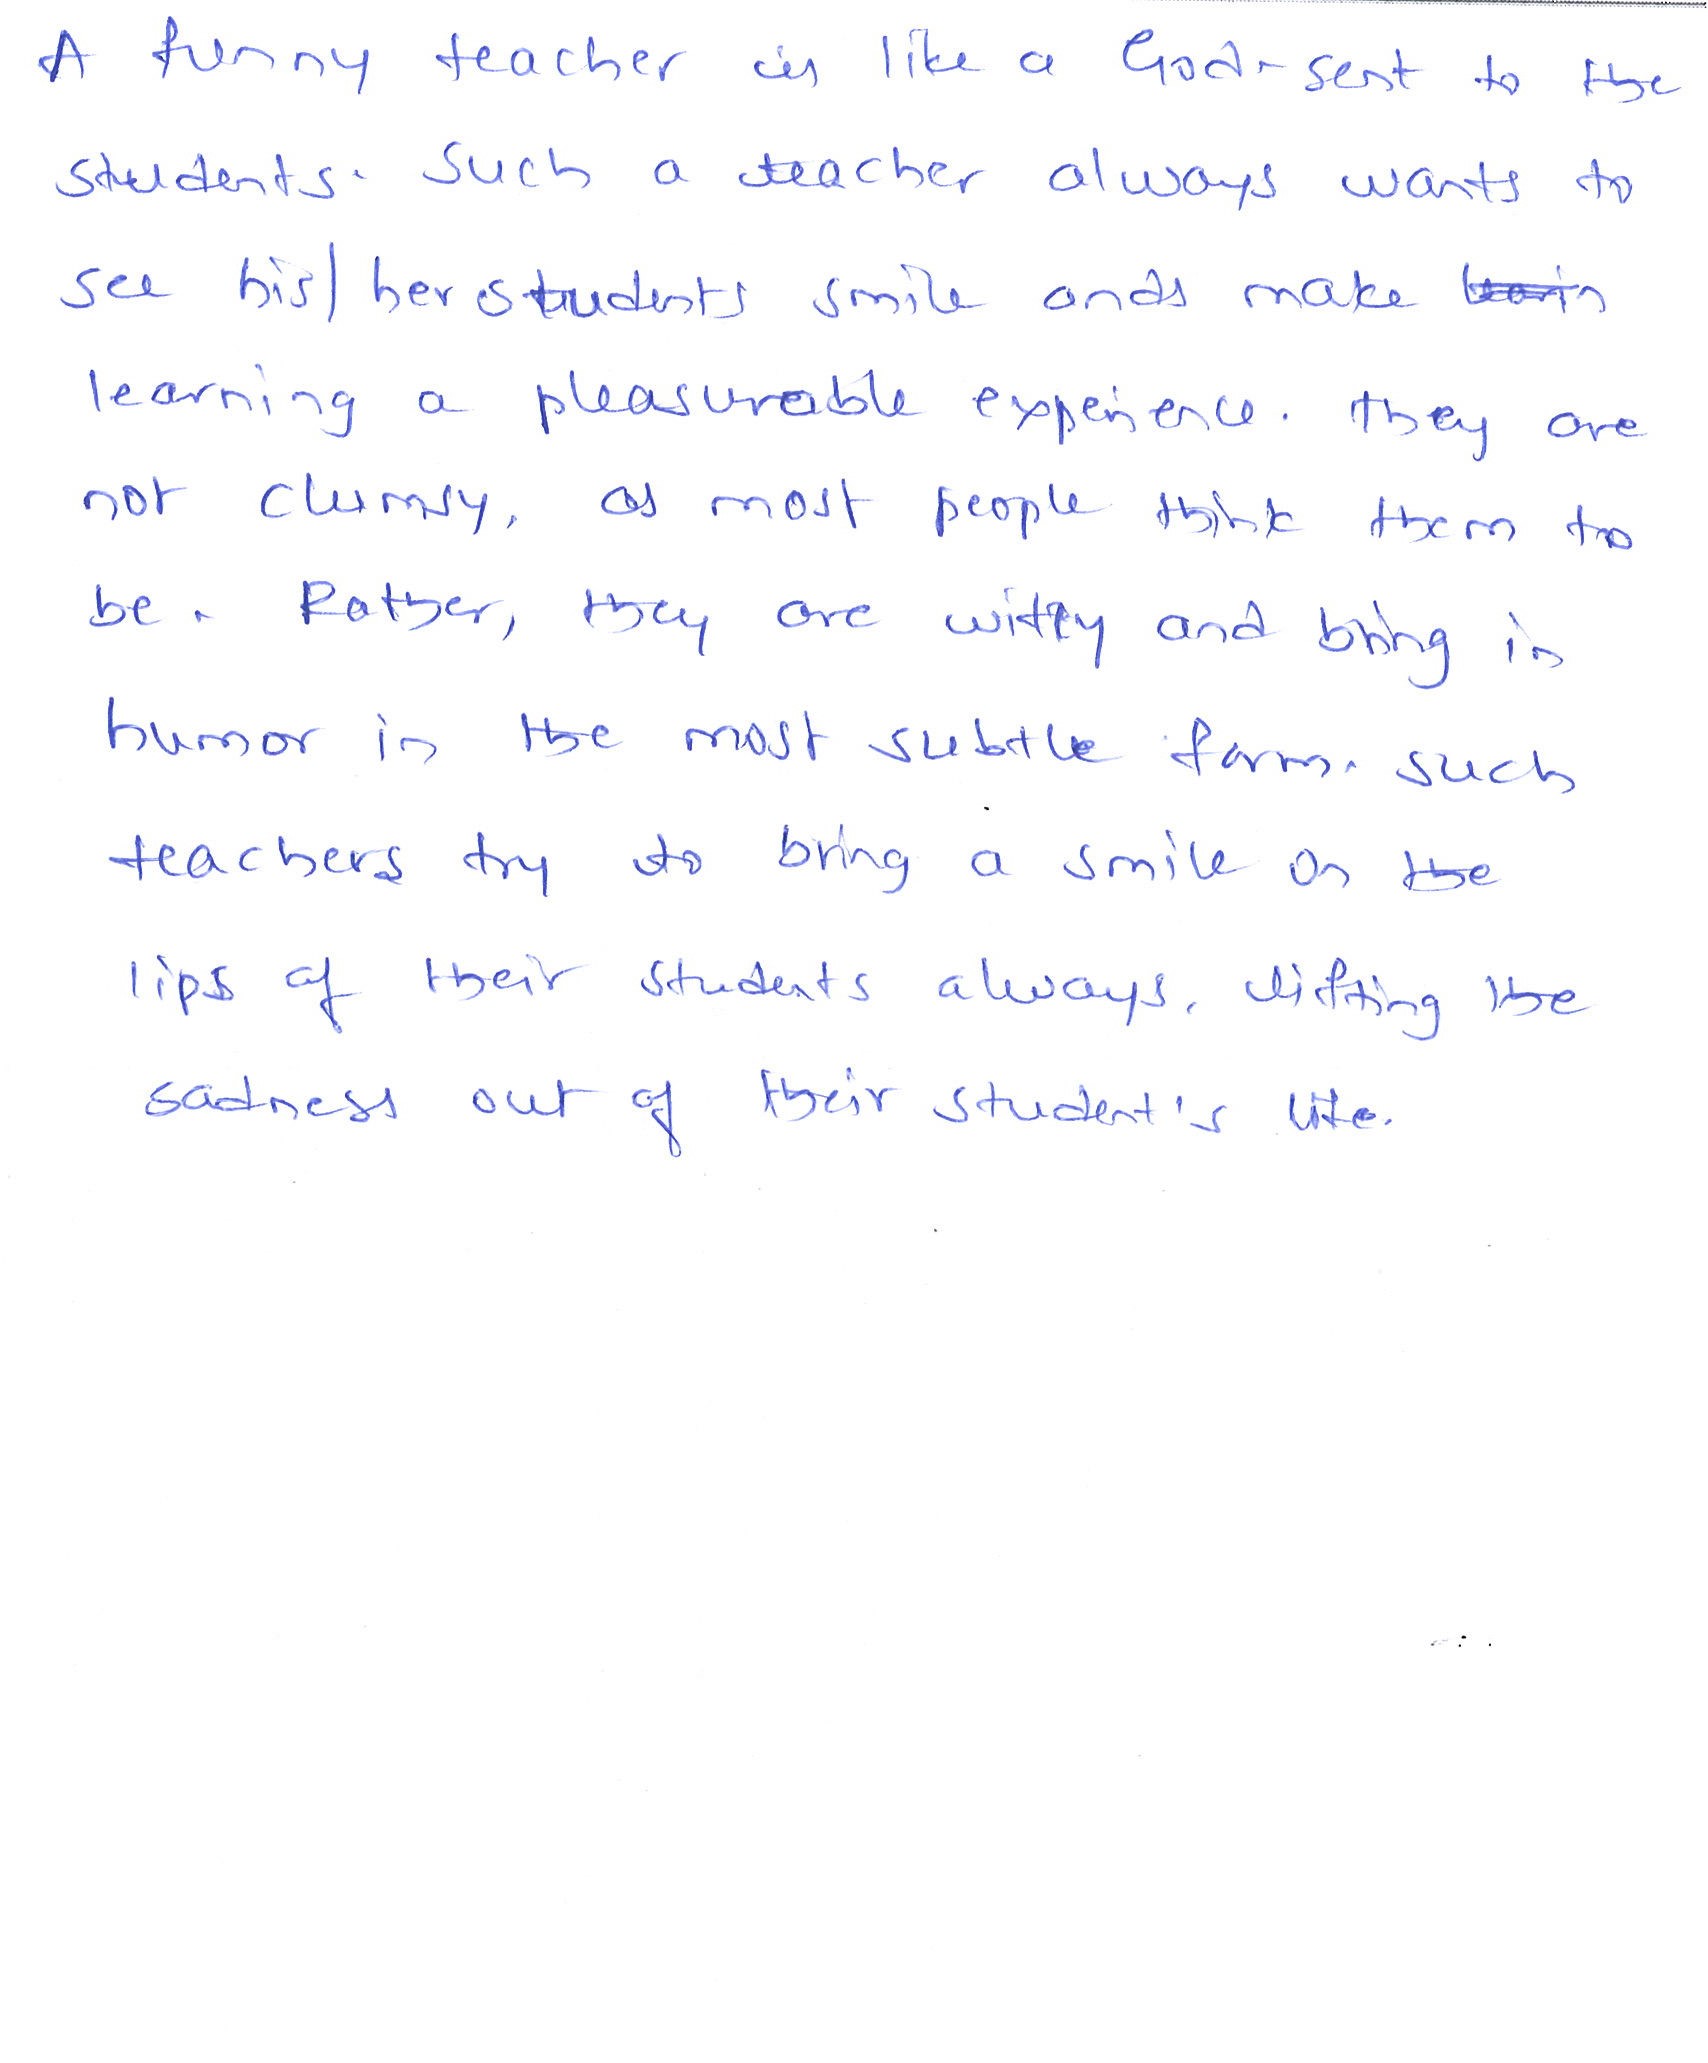 A funny teacher is like a God-sent to the
students. Such a teacher always wants to
see his/her students smile ands make
learning a pleasureable experience. they are
not clumsy, as most people think them to
be. Rather, they are witty and bring in
humor in the most subtle form. such
teachers try to bring a smile on the
lips of their students always, lifting the
sadness out of their student's life.